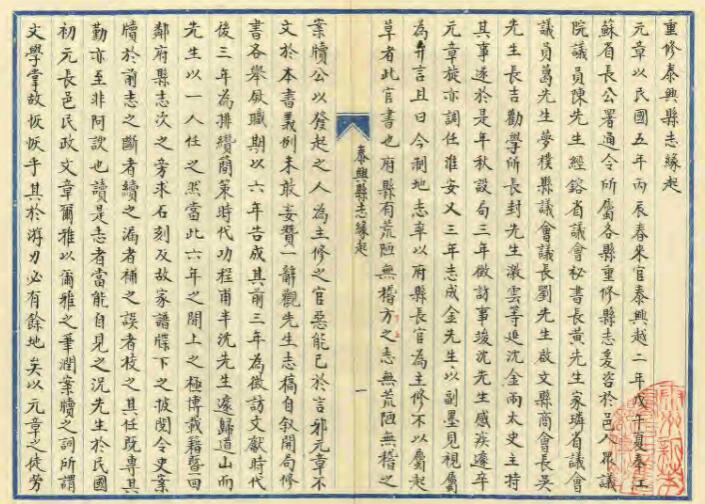 重修泰興縣志緣起
元章以民國五年丙辰春來官泰興越二年戊午夏奉江
蘇省長公署通令所屬各縣重修縣志爰咨於邑人眾議
院議員陳先生經鎔省議會秘書長黃先生家璘省議會
議員葛先生夢樸縣議會議長劉先生啟文縣商會長吳
先生長吉勸學所長封先生激雲等延沈金兩太史主持
其事遂於是年秋設局三年徵訪事竣沈先生感疾遽卒
元章旋亦調任淮安又三年志成金先生以副墨見視屬
為弁言且曰今制地志率以府縣長官為主修不以屬起
草者此官書也府縣有荒陋無稽方之志無荒陋無稽之
泰興縣志緣起
一
案牘公以發起之人為主修之官惡能已於言邪元章不
文於本書義例未敢妄贊一辭觀先生志稿自敘開局修
書各舉厥職期以六年告成其前三年為徵訪文獻時代
後三年為排纘簡策時代功程甫半沈先生遽歸道山而
先生以一人任之然當此六年之間上之極博載籍暨回
鄰府縣志次之旁求石刻及故家譜牒下之披閱令史案
牘於前志之斷者續之漏者補之誤者校之其任既專其
勤亦至非阿諛也讀是志者當能自見之況先生於民國
初元長邑民政文章爾雅以爾雅之筆潤案牘之詞所謂
文學掌故恢恢乎其於游刃必有餘地矣以元章之徒勞